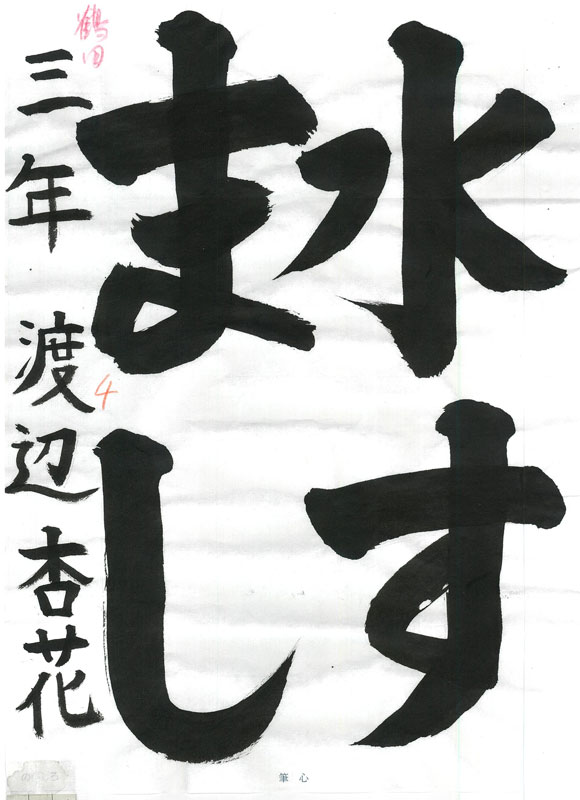 水す
まし
三年 渡辺 杏花
鶴田
4
筆心